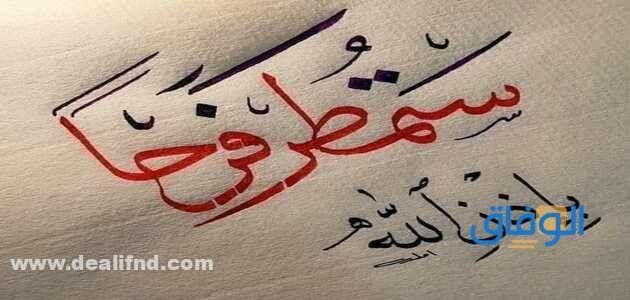 ستمطر فرحاً
بإذن الله
الوفاق
www.dealifnd.com